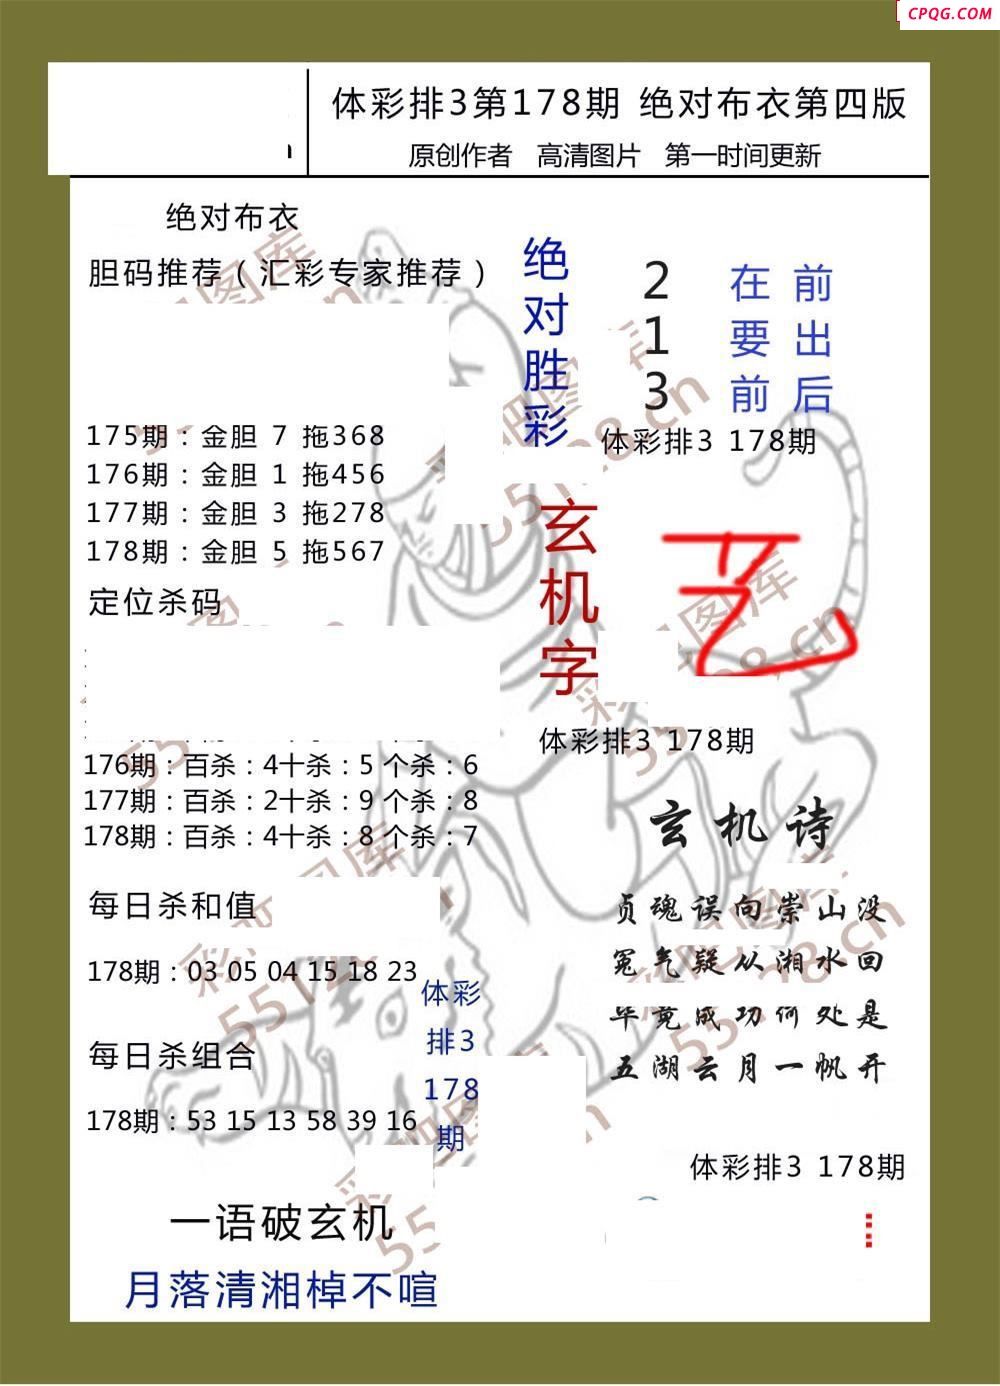 CPQG.COM
体彩排3第178期 绝对布衣第四版
原创作者 高清图片 第一时间更新
绝对布衣
胆码推荐（汇彩专家推荐）
175期：金胆 7 拖368
176期：金胆 1 拖456
177期：金胆 3 拖278
178期：金胆 5 拖567
定位杀码
176期：百杀：4十杀：5 个杀：6
177期：百杀：2十杀：9 个杀：8
178期：百杀：4十杀：8 个杀：7
每日杀和值
178期：03 05 04 15 18 23
每日杀组合
178期：53 15 13 58 39 16
体彩
排3
178
期
一语破玄机
月落清湘棹不喧
绝对胜彩
2 在前
1 要出
3 前后
体彩排3 178期
玄机字
体彩排3 178期
玄机诗
贞魂误向崇山没
冤气疑从湘水回
毕竟成功何处是
五湖云月一帆开
体彩排3 178期
彩吧图库
55128.cn